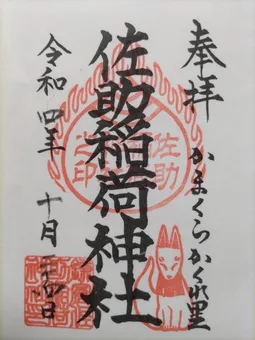 奉拝
かまくらかくれ里
佐助稲荷神社
令和四年
十月二十四日
佐助
之印